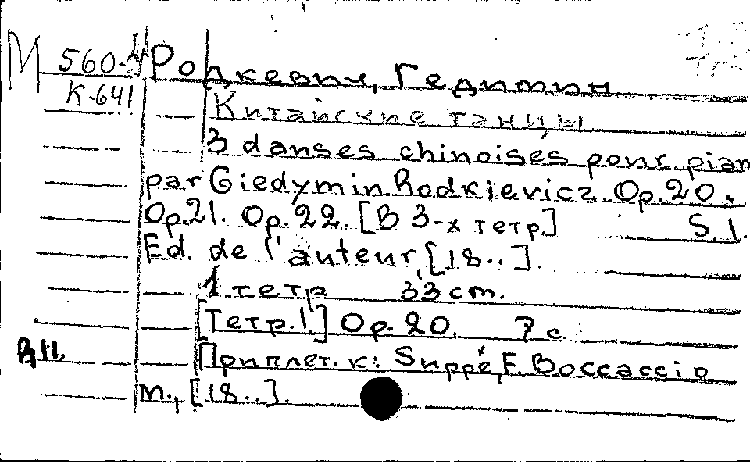 М 560-У Родкевич, Гедимин
К-641 Китайские танцы
3 danses chinoises pour pian
par Giedymin Rodkievicz. Op.20.
Op.21. Op.22. [В 3-х тетр.] S.l.
Ed. de l'auteur, [18..].
1 тетр 33 cm.
[Тетр.1.] Op.20. 7 с.
Приплет. к: Suppé, F. Boccaccio
m., [18..].